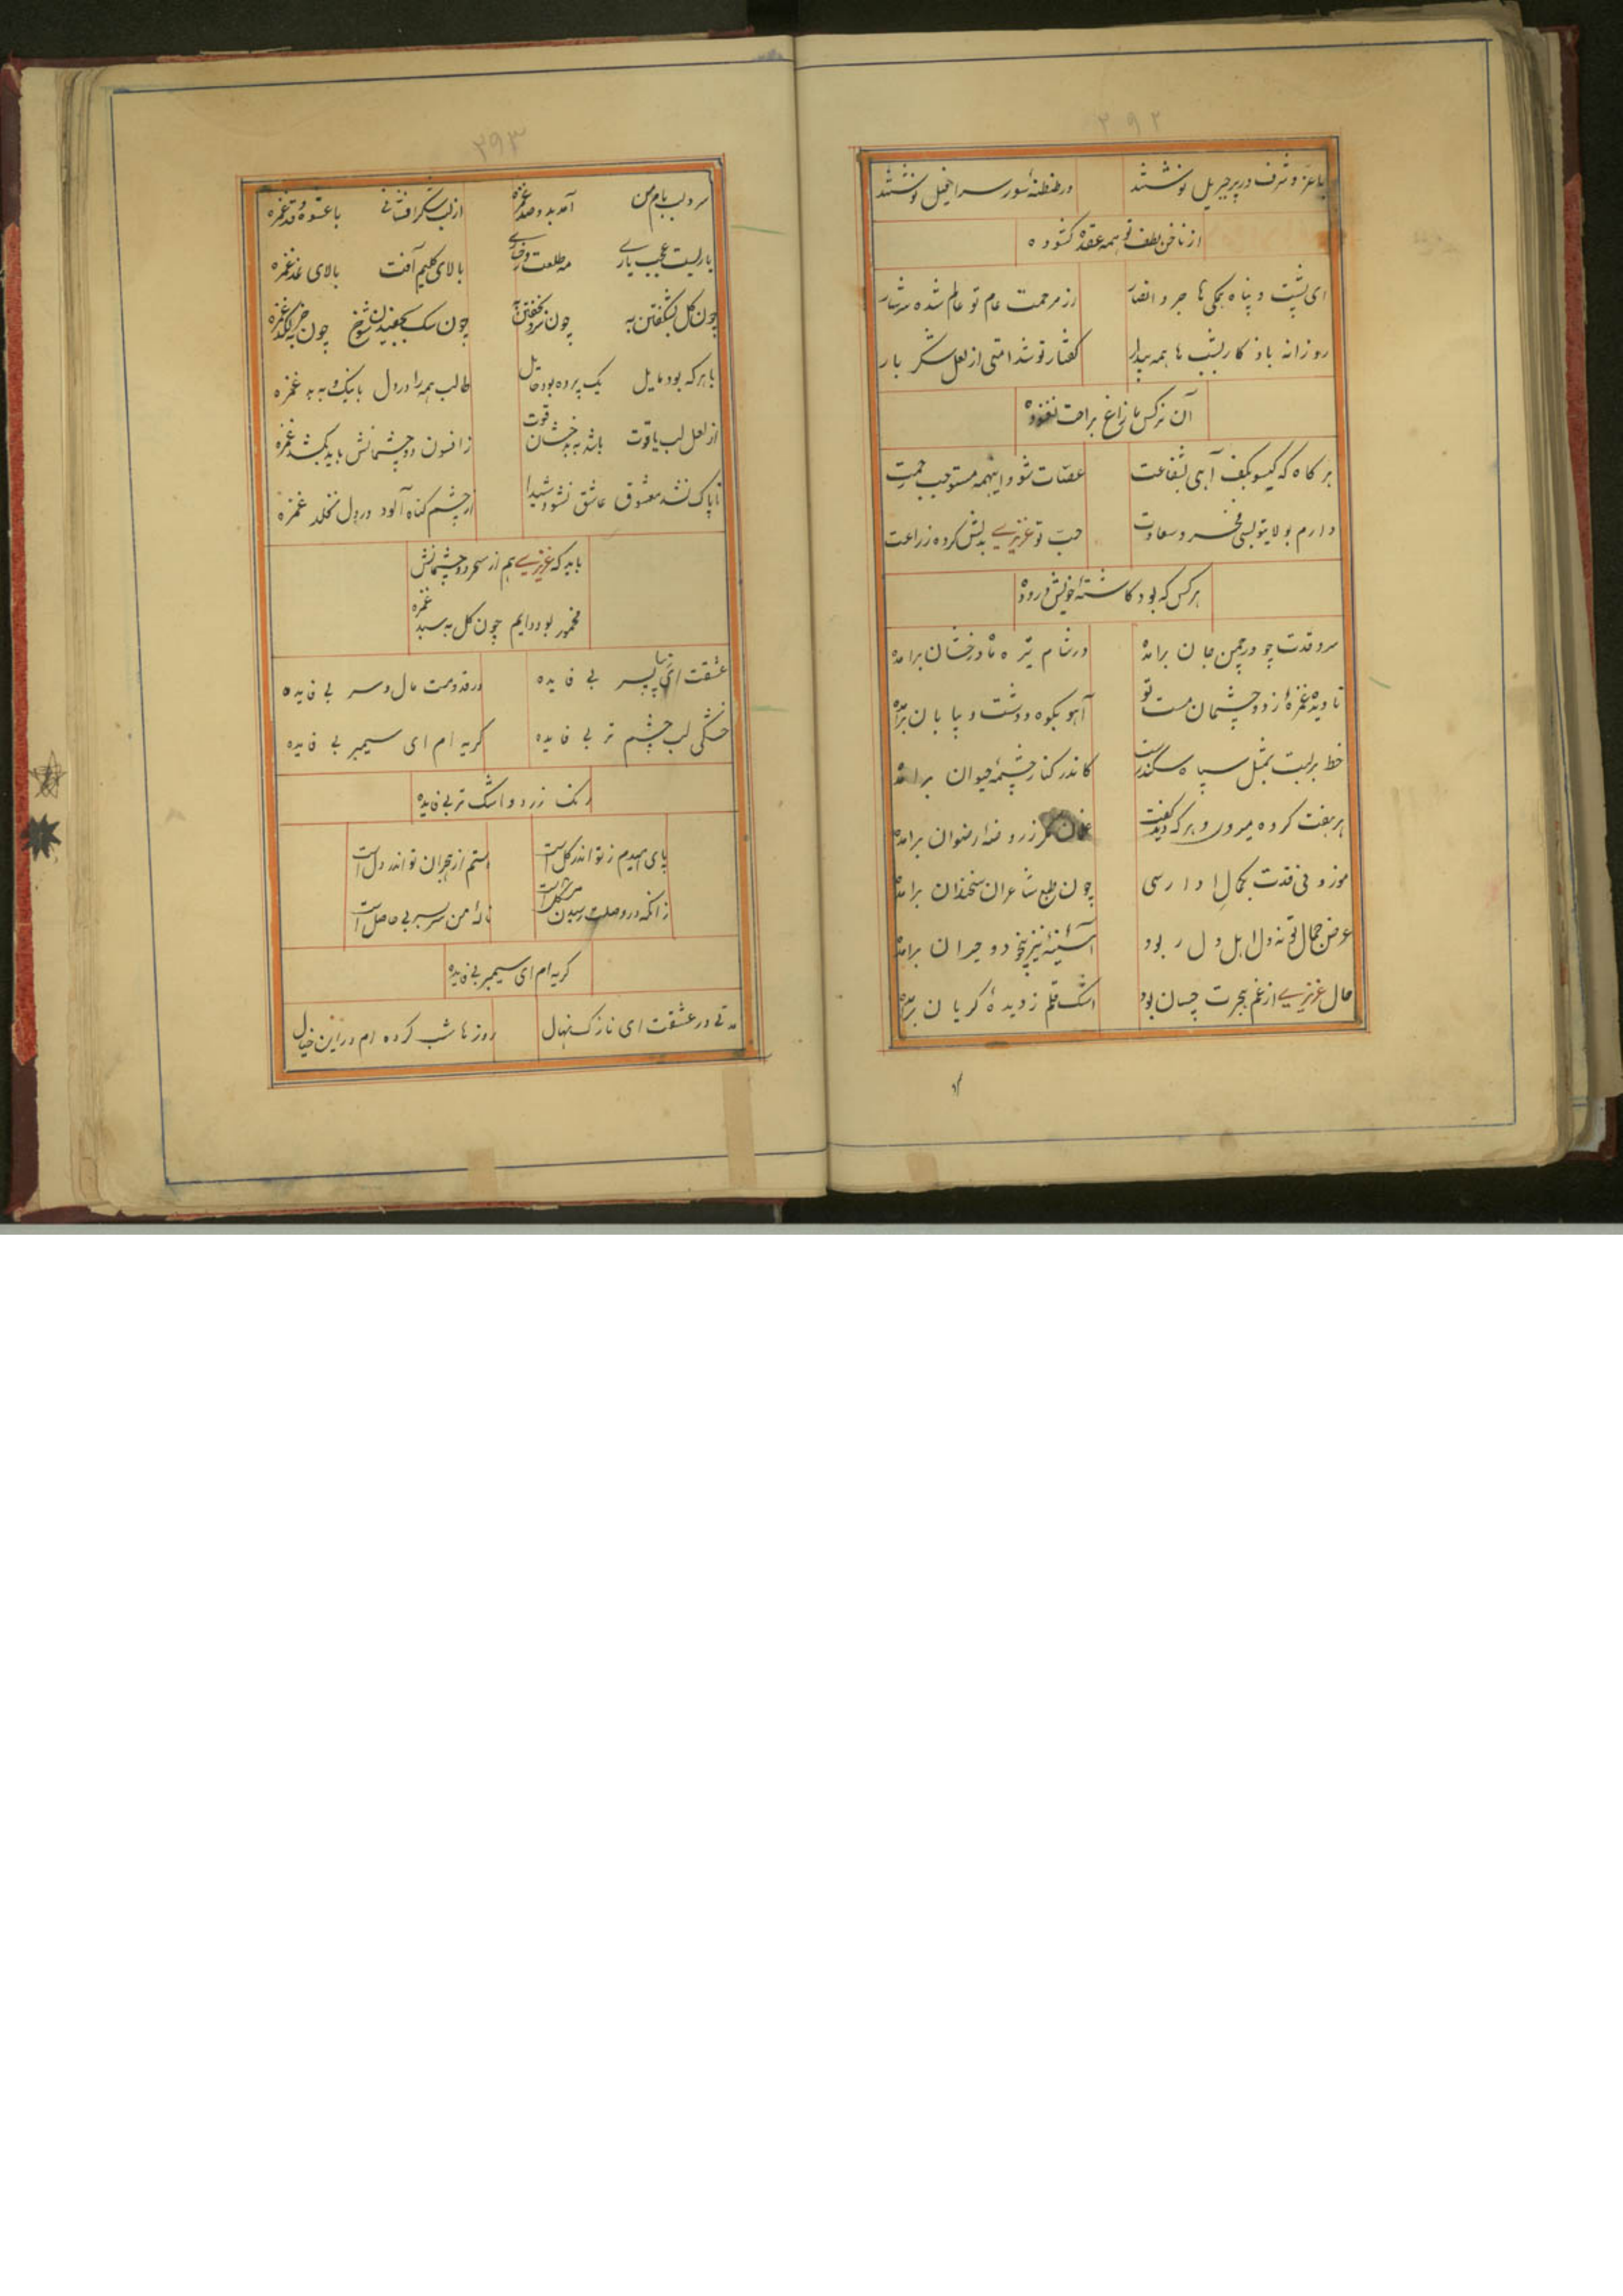 ۲۹۲
با عز و شرف در پر جبریل نوشتند در طنطنهٔ سور سرافیل نوشتند
از ناخن لطف تو همه عقده کشوده
ای پشت و پناه همکی ها جر و انصار از مرحمت عام تو عالم شده سرشار
روزانه باذکار بشب ها همه بیدار کفتار تو شد امتی از لعل شکر بار
آن نرکس ما زاغ براحت نغنوده
بر کاه که کیسو بکف آیی بشفاعت عصات شود اینهمه مستوجب رحمت
دارم بولایتو بسی فخر و سعادت حب تو عزیزی بدلش کرده زراعت
هر کس که بود کاشتهٔ خویش دروده
سرو قدت چو در چمن جان برامده در شام تیره ماه درخشان برامده
تا دیده غمزهٔ ز دو چشمان مست تو آهو بکوه و دشت و بیابان برامده
خط بر لبت بمثل سپاه سکندر است کاندر کنار چشمهٔ حیوان برامده
هر هفت کرده میروی و هر که دید کفت مکر ز روضهٔ رضوان برامده
موزونی قدت بکمال ادا رسی چون طبع شاعران سخندان برامده
عرض جمال تو نه دل اهل دل ربود آئینه نیز بیخود و حیران برامده
حال عزیزی از غم هجرت چسان بود اشک قلم ز دیدهٔ کریان برامده
۲۹۳
سر و لب بام من آمد بدو صد غمزه از لب شکر افشانی با عشوه و قد غمزه
یاریست عجب یاری مه طلعت و رخساری بالای کلیم آفت بالای نمد غمزه
چون کل بشکفتن به چون سک بجهیدن شوخ چون خر به لکد غمزه
با هر که بود مایل یک پرده بود حایل طالب همه را در دل با نیک و به بد غمزه
از لعل لب یاقوت باشد به بدخشان قوت ز افسون دو چشمانش باید بکشد غمزه
تا پاک نشد معشوق عاشق نشود شیدا از چشم کناه آلود در دل نخلد غمزه
باید که عزیزی هم از سحر دو چشمانش
مخمور بود دایم چون کل به سبد غمزه
عشقت ای زیبا پسر بی فایده در قدومت مال و سر بی فایده
خشکی لب چشم تر بی فایده کریه ام ای سیمبر بی فایده
رنک زرد و اشک تر بی فایده
پای امیدم ز تو اندر کل است استم از هجران تو اندر دل است
زانکه در وصلت رسیدن مشکل است نالهٔ من سر بسر بی حاصل است
کریه ام ای سیمبر بی فایده
مدتی در عشقت ای نازک نهال روزها شب کرده ام در این خیال